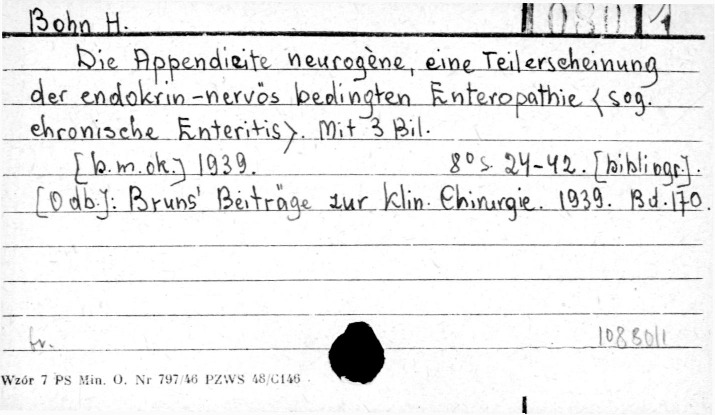 Bohn H.
Die Appendicite neurogène, eine Teilerscheinung
der endokrin-nervös bedingten Enteropathie <sog.
chronische Enteritis>. Mit 3 Bil.
[b.m.ok.] 1939. 8° s. 24-42. [bibliogr.].
[Odb.]: Bruns' Beiträge zur klin. Chirurgie. 1939. Bd. 170.
fr. 10830/1
Wzór 7 PS Min. O. Nr 797/46 PZWS 48/C146